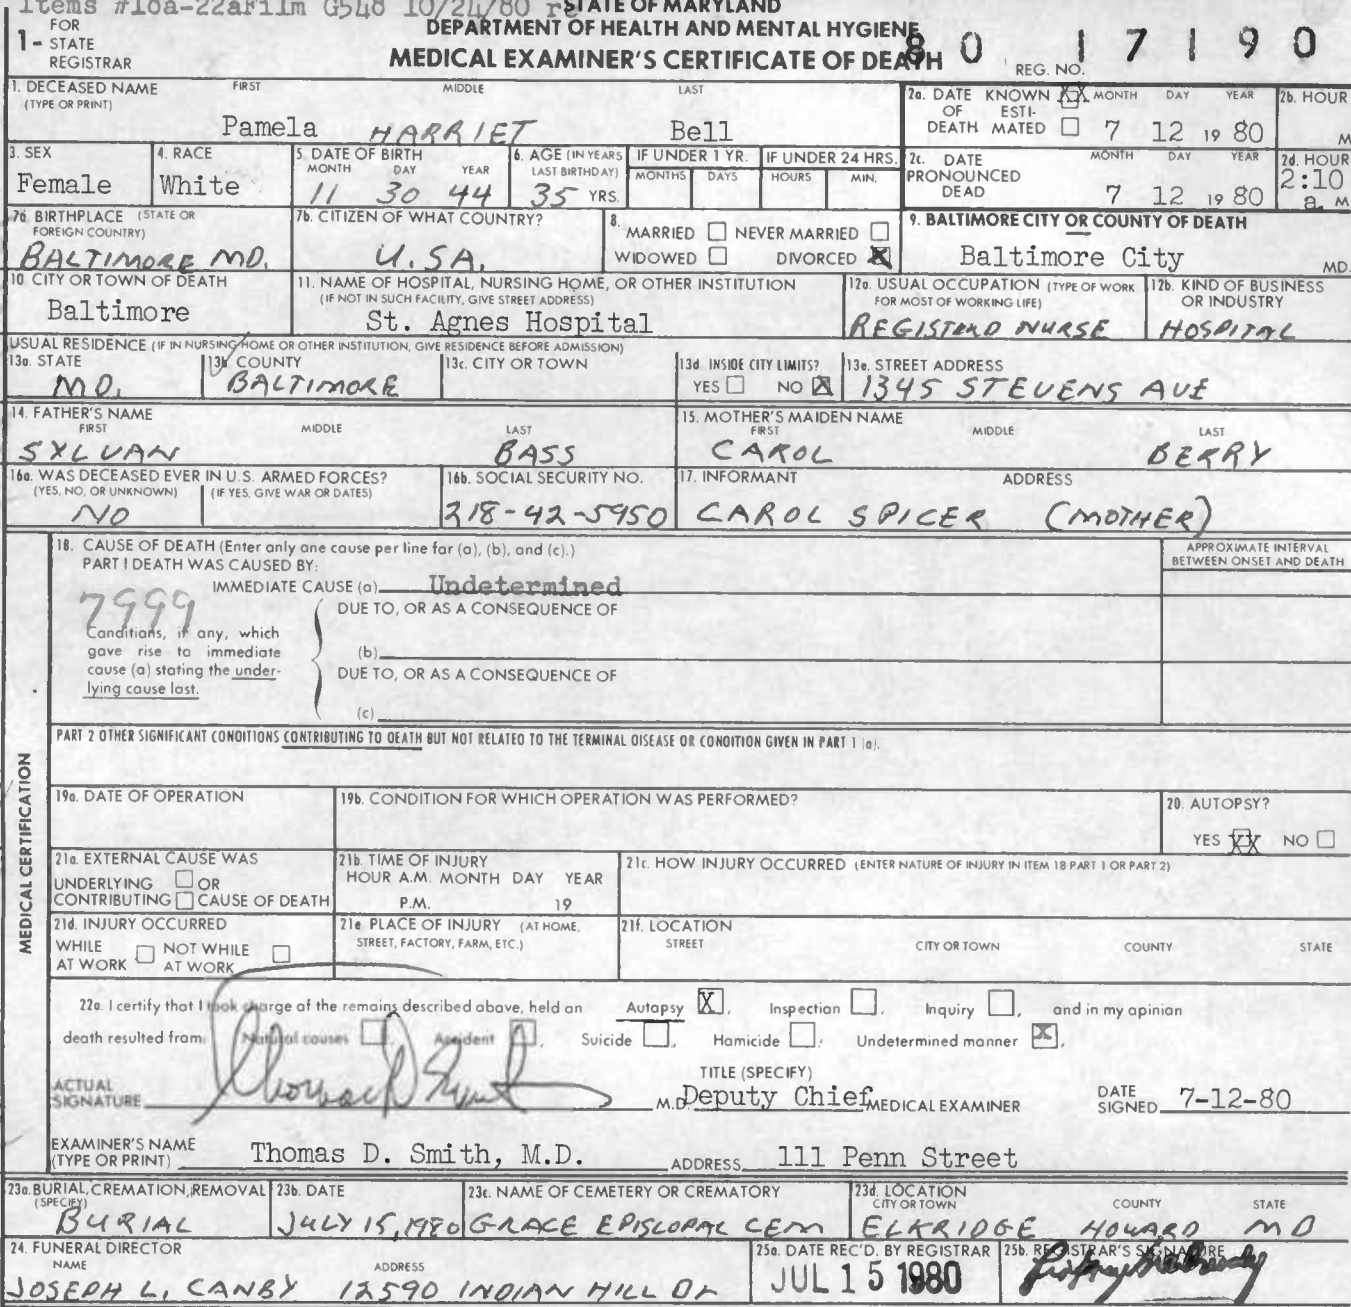 Items #18a-22aFilm G548 10/24/80 re
STATE OF MARYLAND
DEPARTMENT OF HEALTH AND MENTAL HYGIENE
MEDICAL EXAMINER'S CERTIFICATE OF DEATH
1- FOR STATE REGISTRAR
80 17190
REG. NO.
1. DECEASED NAME (TYPE OR PRINT) FIRST MIDDLE LAST
Pamela HARRIET Bell
2a. DATE OF DEATH KNOWN XX ESTIMATED MONTH DAY YEAR
7 12 19 80
2b. HOUR
M
3. SEX
Female
4. RACE
White
5. DATE OF BIRTH MONTH DAY YEAR
11 30 44
6. AGE (IN YEARS LAST BIRTHDAY)
35 YRS.
IF UNDER 1 YR. MONTHS DAYS
IF UNDER 24 HRS. HOURS MIN.
2c. DATE PRONOUNCED DEAD MONTH DAY YEAR
7 12 19 80
2d. HOUR
2:10 a. M
7a. BIRTHPLACE (STATE OR FOREIGN COUNTRY)
BALTIMORE MD.
7b. CITIZEN OF WHAT COUNTRY?
U.SA.
8. MARRIED NEVER MARRIED
WIDOWED DIVORCED X
9. BALTIMORE CITY OR COUNTY OF DEATH
Baltimore City MD.
10. CITY OR TOWN OF DEATH
Baltimore
11. NAME OF HOSPITAL, NURSING HOME, OR OTHER INSTITUTION
(IF NOT IN SUCH FACILITY, GIVE STREET ADDRESS)
St. Agnes Hospital
12a. USUAL OCCUPATION (TYPE OF WORK FOR MOST OF WORKING LIFE)
REGISTERD NURSE
12b. KIND OF BUSINESS OR INDUSTRY
HOSPITAL
USUAL RESIDENCE (IF IN NURSING HOME OR OTHER INSTITUTION, GIVE RESIDENCE BEFORE ADMISSION)
13a. STATE
MD.
13b. COUNTY
BALTIMORE
13c. CITY OR TOWN
13d INSIDE CITY LIMITS?
YES NO X
13e. STREET ADDRESS
1345 STEVENS AVE
14. FATHER'S NAME FIRST MIDDLE LAST
SYLVAN BASS
15. MOTHER'S MAIDEN NAME FIRST MIDDLE LAST
CAROL BERRY
16a. WAS DECEASED EVER IN U.S. ARMED FORCES?
(YES, NO, OR UNKNOWN) (IF YES, GIVE WAR OR DATES)
NO
16b. SOCIAL SECURITY NO.
218-42-5950
17. INFORMANT ADDRESS
CAROL SPICER (MOTHER)
18. CAUSE OF DEATH (Enter only one cause per line for (a), (b), and (c).)
PART I DEATH WAS CAUSED BY:
IMMEDIATE CAUSE (a) Undetermined
7999
DUE TO, OR AS A CONSEQUENCE OF
Conditions, if any, which gave rise to immediate cause (a) stating the underlying cause last.
(b)
DUE TO, OR AS A CONSEQUENCE OF
(c)
APPROXIMATE INTERVAL BETWEEN ONSET AND DEATH
PART 2 OTHER SIGNIFICANT CONDITIONS CONTRIBUTING TO DEATH BUT NOT RELATED TO THE TERMINAL DISEASE OR CONDITION GIVEN IN PART 1 (a).
MEDICAL CERTIFICATION
19a. DATE OF OPERATION
19b. CONDITION FOR WHICH OPERATION WAS PERFORMED?
20. AUTOPSY?
YES XX NO
21a. EXTERNAL CAUSE WAS
UNDERLYING OR
CONTRIBUTING CAUSE OF DEATH
21b. TIME OF INJURY
HOUR A.M. MONTH DAY YEAR
P.M. 19
21c. HOW INJURY OCCURRED (ENTER NATURE OF INJURY IN ITEM 18 PART 1 OR PART 2)
21d. INJURY OCCURRED
WHILE AT WORK NOT WHILE AT WORK
21e PLACE OF INJURY (AT HOME, STREET, FACTORY, FARM, ETC.)
21f. LOCATION
STREET CITY OR TOWN COUNTY STATE
22a. I certify that I took charge of the remains described above, held an Autopsy X, Inspection, Inquiry, and in my opinion
death resulted from Natural causes, Accident, Suicide, Homicide, Undetermined manner X,
ACTUAL SIGNATURE Thomas D Smith M.D.
TITLE (SPECIFY)
Deputy Chief MEDICAL EXAMINER
DATE SIGNED 7-12-80
EXAMINER'S NAME (TYPE OR PRINT) Thomas D. Smith, M.D. ADDRESS 111 Penn Street
23a. BURIAL, CREMATION, REMOVAL (SPECIFY)
BURIAL
23b. DATE
JULY 15, 1980
23c. NAME OF CEMETERY OR CREMATORY
GRACE EPISLOPAL CEM
23d. LOCATION CITY OR TOWN COUNTY STATE
ELKRIDGE HOWARD MD
24. FUNERAL DIRECTOR
NAME ADDRESS
JOSEPH L. CANBY 12590 INDIAN HILL DR
25a. DATE REC'D. BY REGISTRAR
JUL 15 1980
25b. REGISTRAR'S SIGNATURE